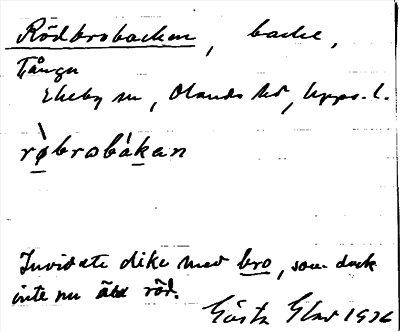 Rödbrobacken, backe,
Tånga
Ekeby sn, Olands hd, Upps. l.
rö̀brobákan
Invid ett dike med bro, som dock
inte nu är röd.
Gösta Elar 1926